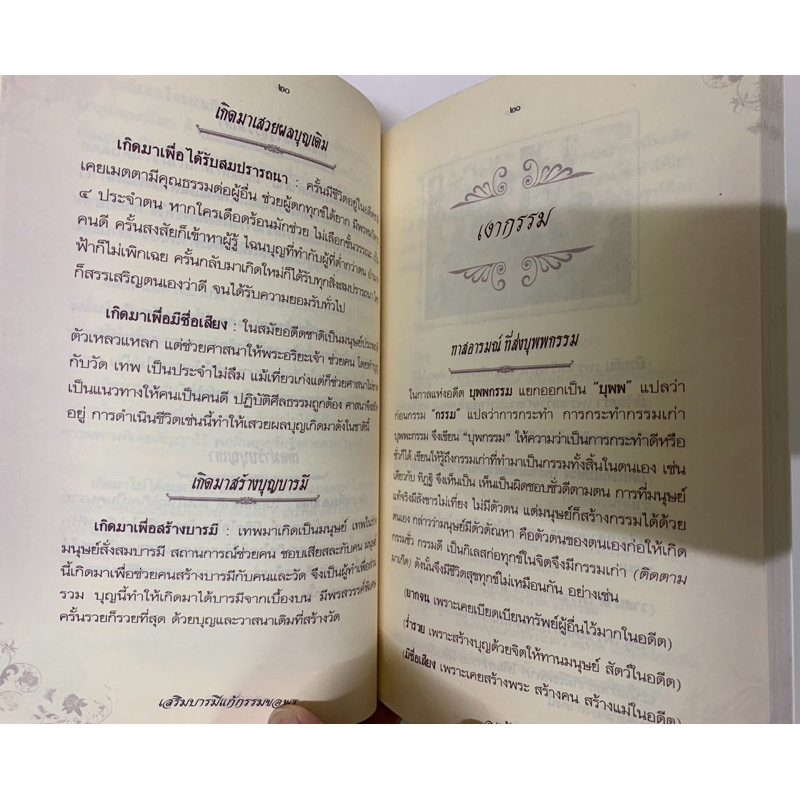 ๒๐
เกิดมาเสวยผลบุญเดิม
เกิดมาเพื่อได้รับสมปรารถนา : ครั้นมีชีวิตอยู่ในอดีต
เคยเมตตามีคุณธรรมต่อผู้อื่น ช่วยผู้ตกทุกข์ได้ยาก มีพรหมวิหาร
๔ ประจำตน หากใครเดือดร้อนมักช่วย ไม่เลือกชั้นวรรณะ
คนดี ครั้นสงสัยก็เข้าหาผู้รู้ ไฉนบุญที่ทำกับผู้ที่ต่ำกว่าตน
ฟ้าก็ไม่เพิกเฉย ครั้นกลับมาเกิดใหม่ก็ได้รับทุกสิ่งสมปรารถนา
ก็สรรเสริญตนเองว่าดี จนได้รับความยอมรับทั่วไป
เกิดมาเพื่อมีชื่อเสียง : ในสมัยอดีตชาติเป็นมนุษย์ประพฤติ
ตัวเหลวแหลก แต่ช่วยศาสนาให้พระอริยะเจ้า ช่วยคน โดยทำบุญ
กับวัด เทพ เป็นประจำไม่ลืม แม้เที่ยวเก่งแต่ก็ช่วยศาสนา
เป็นแนวทางให้คนเป็นคนดี ปฏิบัติศีลธรรมถูกต้อง ศาสนาจึง
อยู่ การดำเนินชีวิตเช่นนี้ทำให้เสวยผลบุญเกิดมาดังในชาตินี้
เกิดมาสร้างบุญบารมี
เกิดมาเพื่อสร้างบารมี : เทพมาเกิดเป็นมนุษย์ เทพใน
มนุษย์สั่งสมบารมี สถานการณ์ช่วยคน ชอบเสียสละกับคน มนุษย์
นี้เกิดมาเพื่อช่วยคนสร้างบารมีกับคนและวัด จึงเป็นผู้ทำเพื่อส่วน
รวม บุญนี้ทำให้เกิดมาได้บารมีจากเบื้องบน มีพรสวรรค์พิเศษ
ครั้นรวยก็รวยที่สุด ด้วยบุญและวาสนาเดิมที่สร้างวัด
เสริมบารมีแก้กรรมขอพร
๒๑
เงากรรม
ทาสอารมณ์ ที่ส่งบุพพกรรม
ในกาลแห่งอดีต บุพพกรรม แยกออกเป็น “บุพพ” แปลว่า
ก่อนกรรม “กรรม” แปลว่าการกระทำ การกระทำกรรมเก่า
บุพพะกรรม จึงเขียน “บุพกรรม” ให้ความว่าเป็นการกระทำดีหรือ
ชั่วก็ได้ เขียนให้รู้ถึงกรรมเก่าที่ทำมาเป็นกรรมทั้งสิ้นในตนเอง เช่น
เดียวกับ ทิฏฐิ จึงเห็นเป็น เห็นเป็นผิดชอบชั่วดีตามตน การที่มนุษย์
แท้จริงมีสังขารไม่เที่ยง ไม่มีตัวตน แต่มนุษย์ก็สร้างกรรมได้ด้วย
ตนเอง กล่าวว่ามนุษย์มีตัวตัณหา คือตัวตนของตนเองก่อให้เกิด
กรรมชั่ว กรรมดี เป็นกิเลสก่อทุกข์ในจิตจึงมีกรรมเก่า (ติดตาม
มาเกิด) ดังนั้นจึงมีชีวิตสุขทุกข์ไม่เหมือนกัน อย่างเช่น
(ยากจน เพราะเคยเบียดเบียนทรัพย์ผู้อื่นไว้มากในอดีต)
(ร่ำรวย เพราะสร้างบุญด้วยจิตให้ทานมนุษย์ สัตว์ในอดีต)
(มีชื่อเสียง เพราะเคยสร้างพระ สร้างคน สร้างแม่ในอดีต)